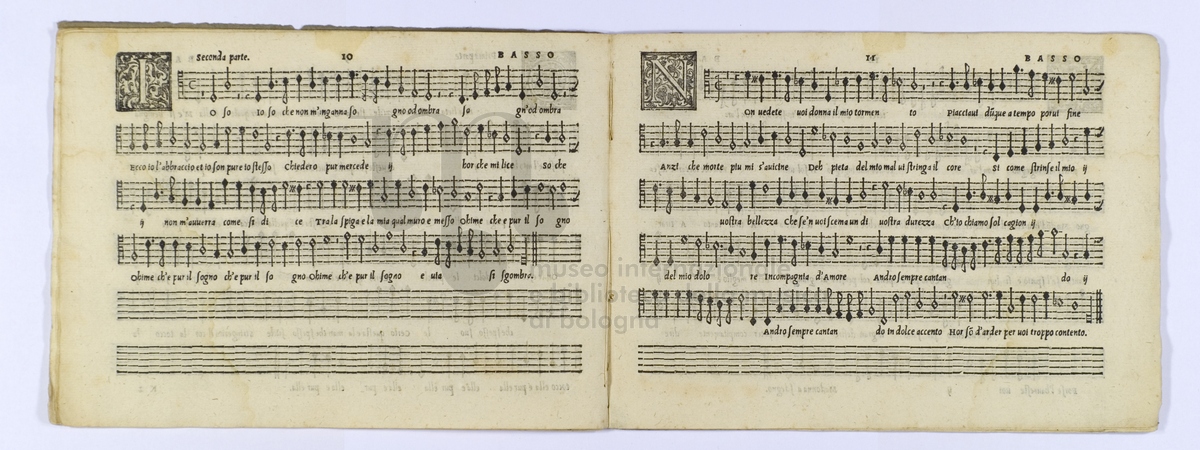 Seconda parte. 10 BASSO
I O so Io so che non m'inganna so gno od ombra so gn'od ombra
Ecco io l'abbraccio et io son pure io stesso Chiedero pur mercede ij hor che mi lice So che
ij non m'auuerra come si di ce Tra la spiga e la mia qual muro e messo Ohime che e pur il so gno
Ohime ch'e pur il sogno ch'e pur il so gno Ohime ch'e pur il sogno e uia si sgombra.
11 BASSO
N On uedete uoi donna il mio tormen to Piacciaui dũque a tempo porui fine
Anzi che morte piu mi s'auicine Deh pieta del mio mal ui stringa il core Si come strinse il mio ij
uostra bellezza Che se'n uoi scema un di uostra durezza Ch'io chiamo sol cagion ij
del mio dolo re Incompagnia d'Amore Andro sempre cantan do ij
Andro sempre cantan do in dolce accento Hor sõ d'arder per uoi troppo contento.
museo internazionale
e biblioteca della musica
di bologna